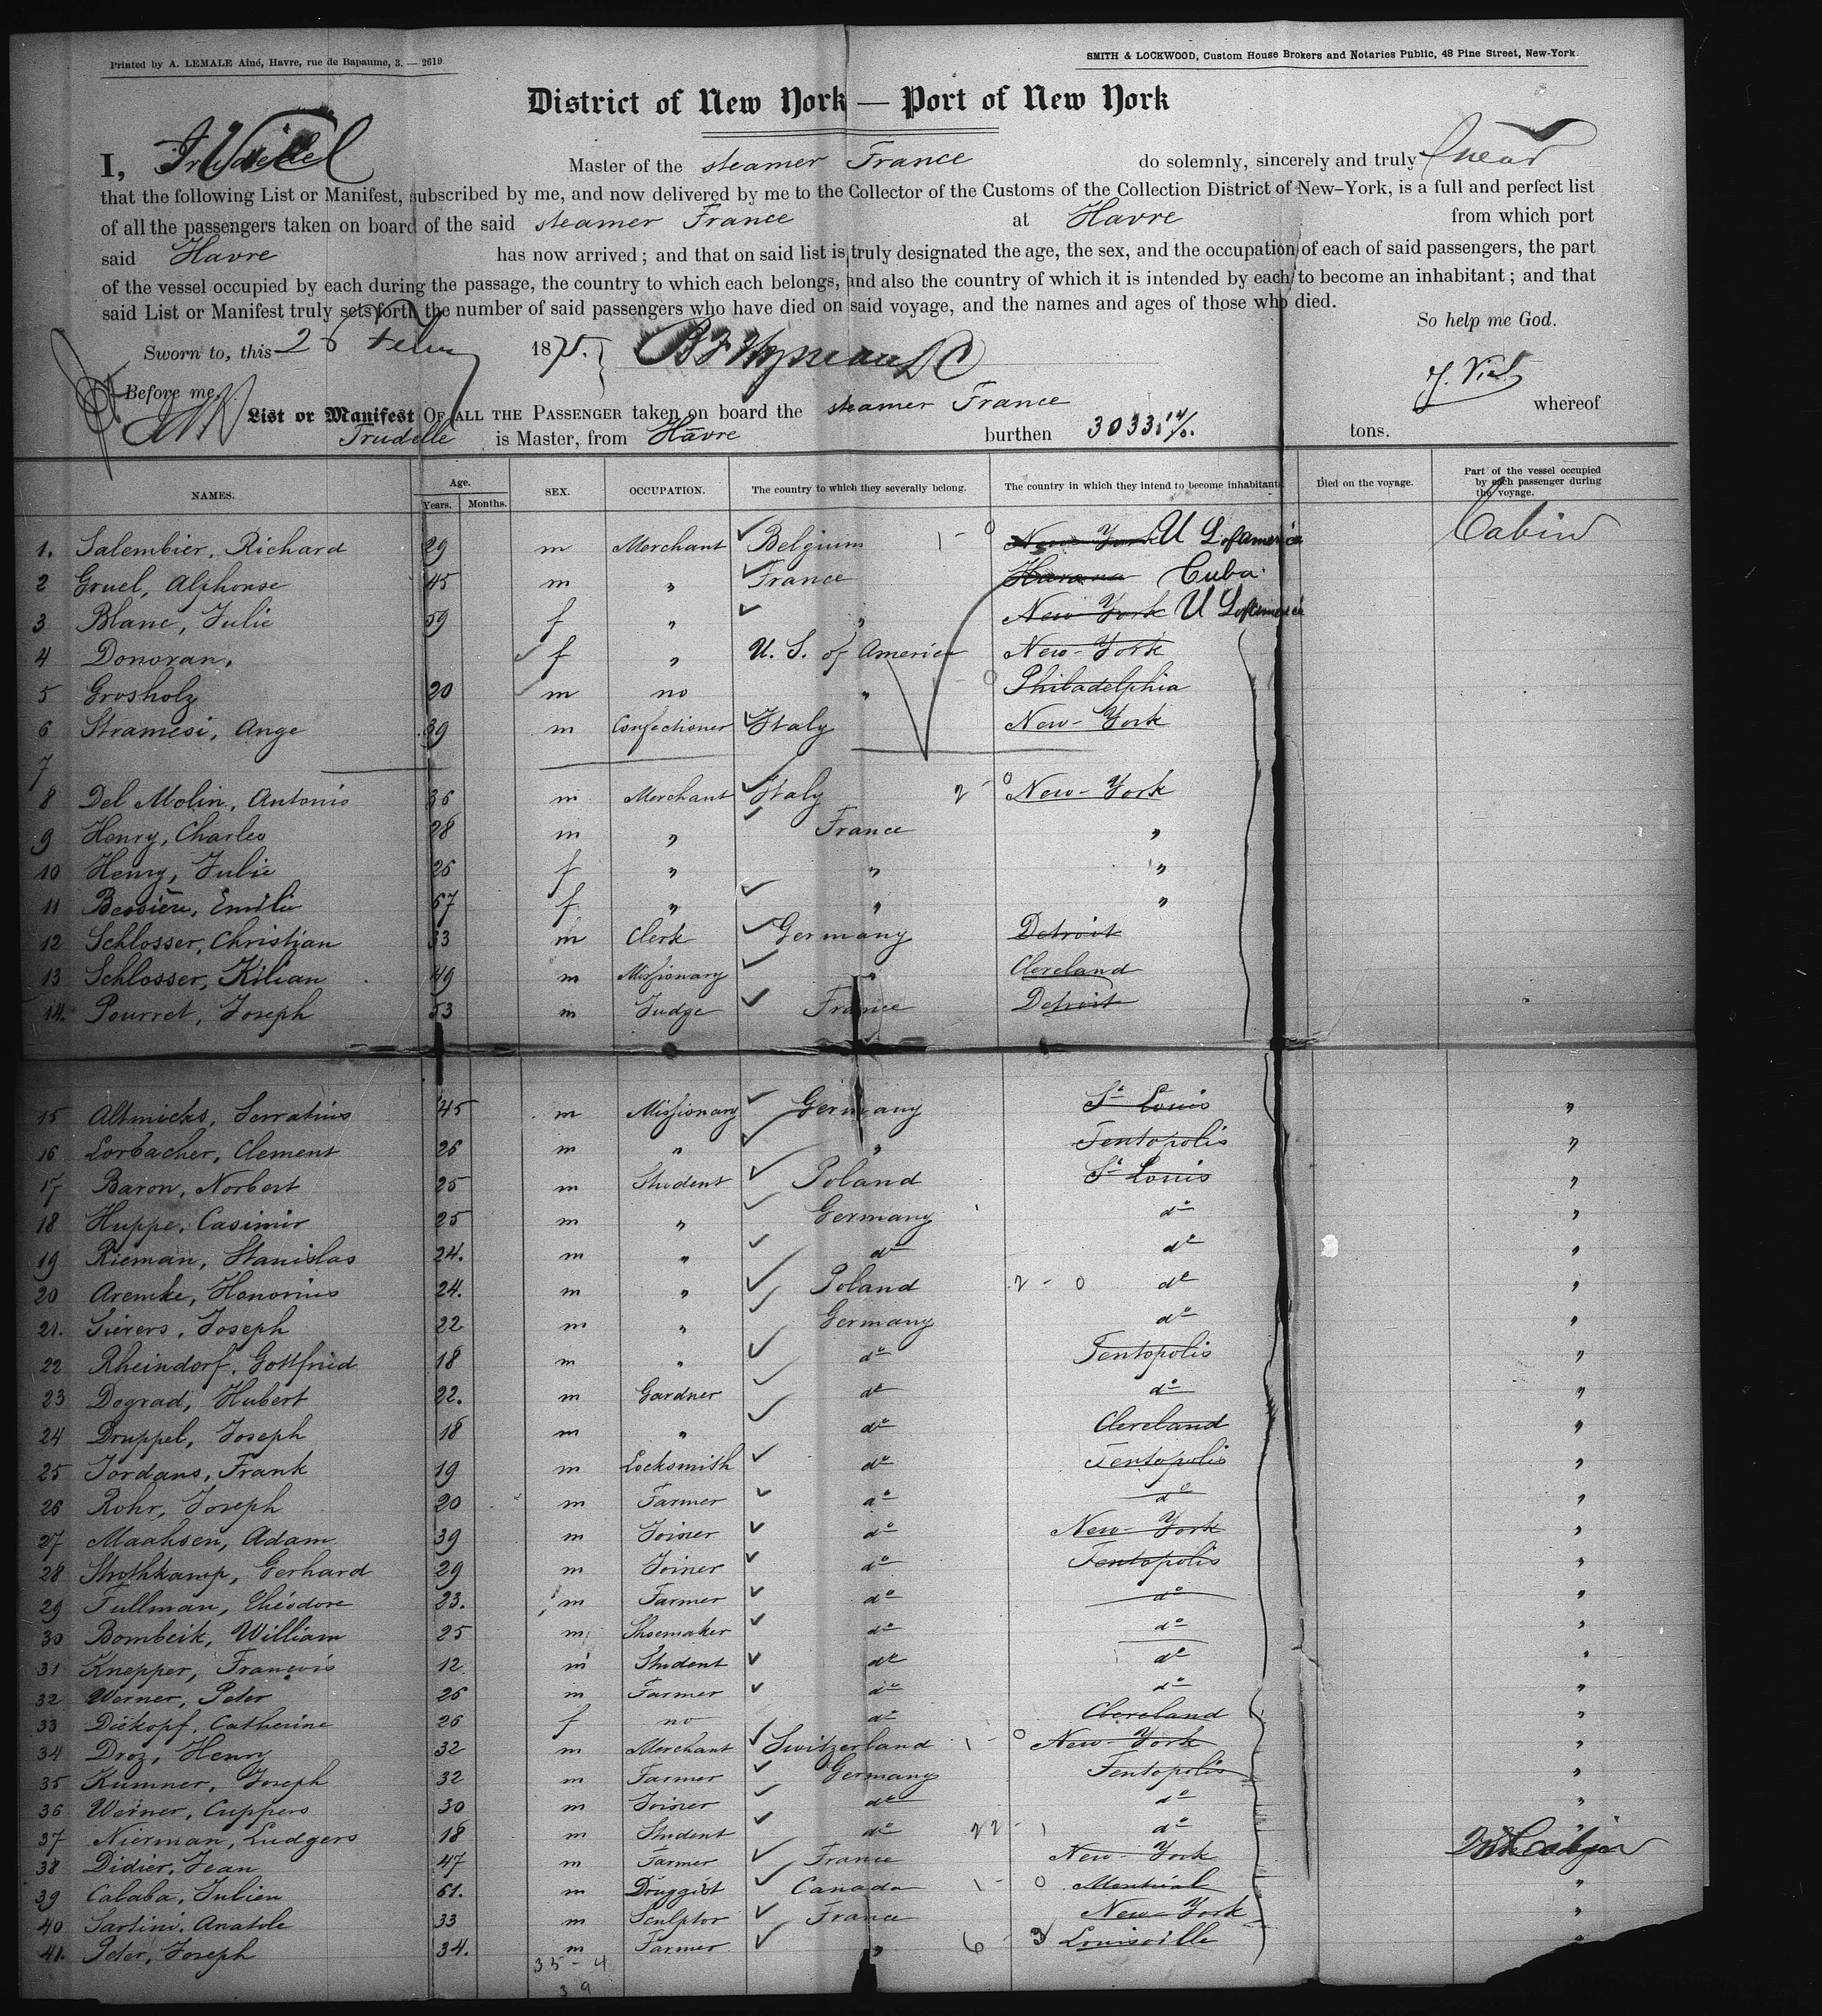 Printed by A. LEMALE Aîné, Havre, rue de Bapaume, 3. — 2619
SMITH & LOCKWOOD, Custom House Brokers and Notaries Public, 48 Pine Street, New-York.
District of New York — Port of New York
I, Master of the steamer France do solemnly, sincerely and truly swear
that the following List or Manifest, subscribed by me, and now delivered by me to the Collector of the Customs of the Collection District of New-York, is a full and perfect list
of all the passengers taken on board of the said steamer France at Havre from which port
said Havre has now arrived; and that on said list is truly designated the age, the sex, and the occupation of each of said passengers, the part
of the vessel occupied by each during the passage, the country to which each belongs, and also the country of which it is intended by each to become an inhabitant; and that
said List or Manifest truly sets forth the number of said passengers who have died on said voyage, and the names and ages of those who died.
So help me God.
Sworn to, this 26 Feby 1875.
Before me,
List or Manifest OF ALL THE PASSENGER taken on board the steamer France whereof
Trudelle is Master, from Havre burthen 3033 tons.
NAMES. Age. Years. Months. SEX. OCCUPATION. The country to which they severally belong. The country in which they intend to become inhabitants Died on the voyage. Part of the vessel occupied by each passenger during the voyage.
1. Salembier, Richard 29 m Merchant Belgium 1 - 0 New York U S of America Cabin
2 Gruel, Alphonse 45 m " France Havana Cuba
3 Blanc, Julie 59 f " " New York U S of America
4 Donovan, f " U. S. of America New-York
5 Grosholz 20 m no " Philadelphia
6 Stramesi, Ange 39 m Confectioner Italy New-York
7
8 Del Molin, Antonio 36 m Merchant Italy 2 - 0 New-York
9 Henry, Charles 28 m " France "
10 Henry, Julie 26 f " " "
11 Bessière, Emilie 67 f " " "
12 Schlosser, Christian 33 m Clerk Germany Detroit
13 Schlosser, Kilian 49 m Missionary " Cleveland
14. Pourret, Joseph 53 m Judge France Detroit
15 Altmicks, Serratius 45 m Missionary Germany St Louis "
16 Lorbacher, Clement 26 m " " Tentopolis "
17 Baron, Norbert 25 m Student Poland St Louis "
18 Huppe, Casimir 25 m " Germany do "
19 Rieman, Stanislas 24. m " do do "
20 Aremke, Honorius 24. m " Poland 2 - 0 do "
21. Sievers, Joseph 22 m " Germany do "
22 Rheindorf, Gottfried 18 m " do Tentopolis "
23 Degrad, Hubert 22. m Gardner do do "
24 Druppel, Joseph 18 m " do Cleveland "
25 Jordans, Frank 19 m Locksmith do Tentopolis "
26 Rohr, Joseph 20 m Farmer do do "
27 Maahsen, Adam 39 m Joiner do New-York "
28 Strothkamp, Gerhard 29 m Joiner do Tentopolis "
29 Tullman, Théodore 23. m Farmer do do "
30 Bombeik, William 25 m Shoemaker do do "
31 Knepper, François 12 m Student do do "
32 Werner, Peter 26 m Farmer do do "
33 Diekopf, Catherine 26 f no do Cleveland "
34 Droz, Henry 32 m Merchant Switzerland 1 - 0 New-York "
35 Kumner, Joseph 32 m Farmer Germany Tentopolis "
36 Werner, Cuppers 30 m Joiner do do "
37 Nierman, Ludgers 18 m Student do 22 - 1 do
38 Didier, Jean 47 m Farmer France New-York
39 Calaba, Julien 61. m Druggist Canada 1 - 0 Montreal "
40 Sartini, Anatole 33 m Sculptor France New-York "
41. Peter, Joseph 34. m Farmer " 6 - 3 Louisville "
35 - 4
39